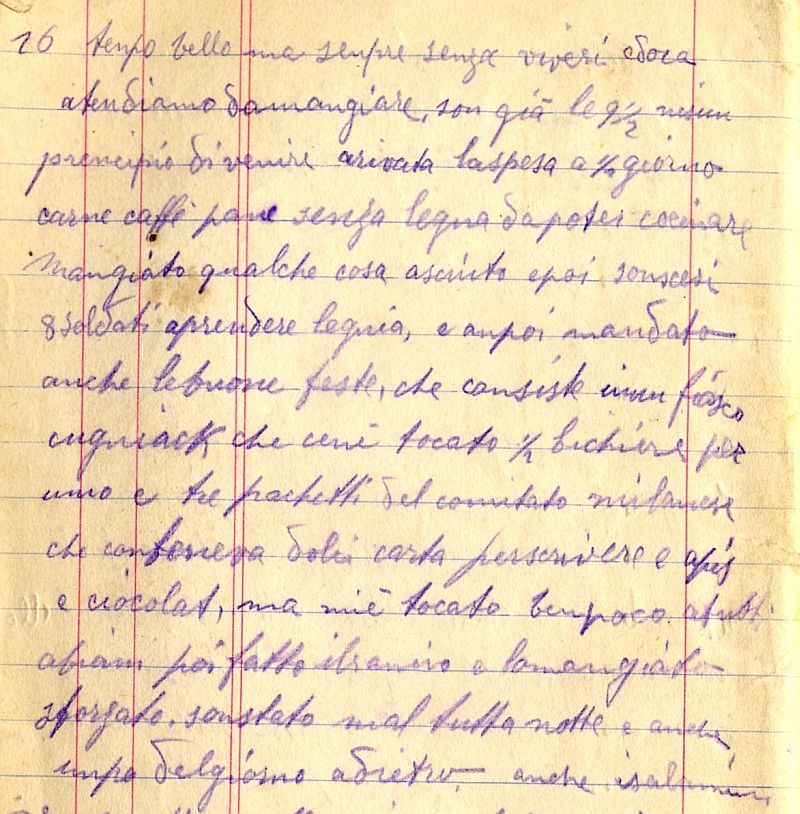 26 tenpo bello ma senpre senza viveri edora
atendiamo damangiare, son già le 9½ nisun
prencipio divenire arivata laspesa a ½ giorno
carne caffè pane senza legna dapoter cocinare
Mangiato qualche cosa asciuto epoi sonscesi
8 soldati aprendere legnia, e anpoi mandato
anche lebuone feste, che consiste inun fiasco
cugniack che cenè tocato ½ bichiere per
uno e tre pachetti del comitato milanese
che conteneva dolci carta perscrivere e apis
e ciocolat, ma miè tocato benpoco atutti
abiam poi fatto ilrancio e lomangiato
sforzato, sonstato mal tutta notte e anche
unpo delgiorno adietro, anche